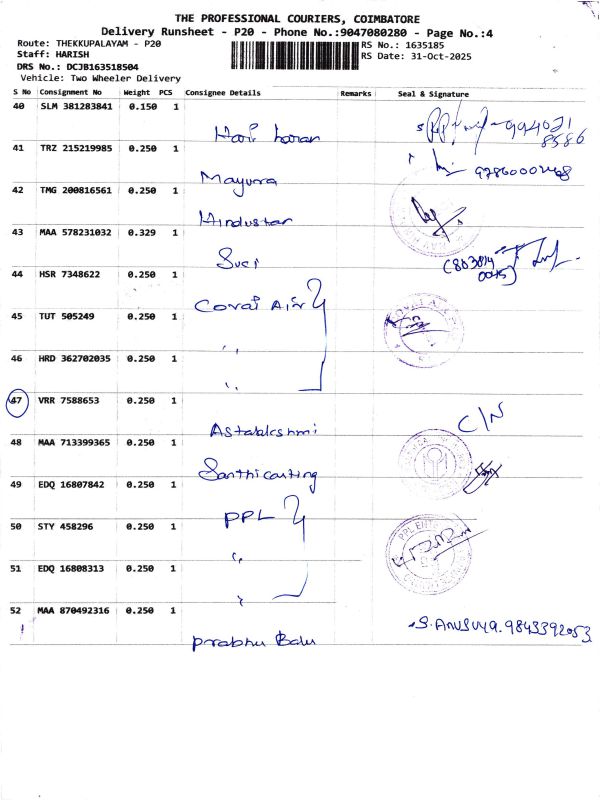 THE PROFESSIONAL COURIERS, COIMBATORE
Delivery Runsheet - P20 - Phone No.:9047080280 - Page No.:4
Route: THEKKUPALAYAM - P20 RS No.: 1635185
Staff: HARISH RS Date: 31-Oct-2025
DRS No.: DCJB163518504
Vehicle: Two Wheeler Delivery
S No Consignment No Weight PCS Consignee Details Remarks Seal & Signature
40 SLM 381283841 0.150 1
Hari haran 994021
8586
41 TRZ 215219985 0.250 1
Mayura
42 TMG 200816561 0.250 1
Hindustan
43 MAA 578231032 0.329 1
Suci
44 HSR 7348622 0.250 1
Covai Air
45 TUT 505249 0.250 1
"
46 HRD 362702035 0.250 1
"
47 VRR 7588653 0.250 1
Astalakshmi C/N
48 MAA 713399365 0.250 1
Santhi casting
49 EDQ 16807842 0.250 1
PPL
50 STY 458296 0.250 1
"
51 EDQ 16808313 0.250 1
"
52 MAA 870492316 0.250 1
Prabhu Balu S. Anusuya. 9843392053